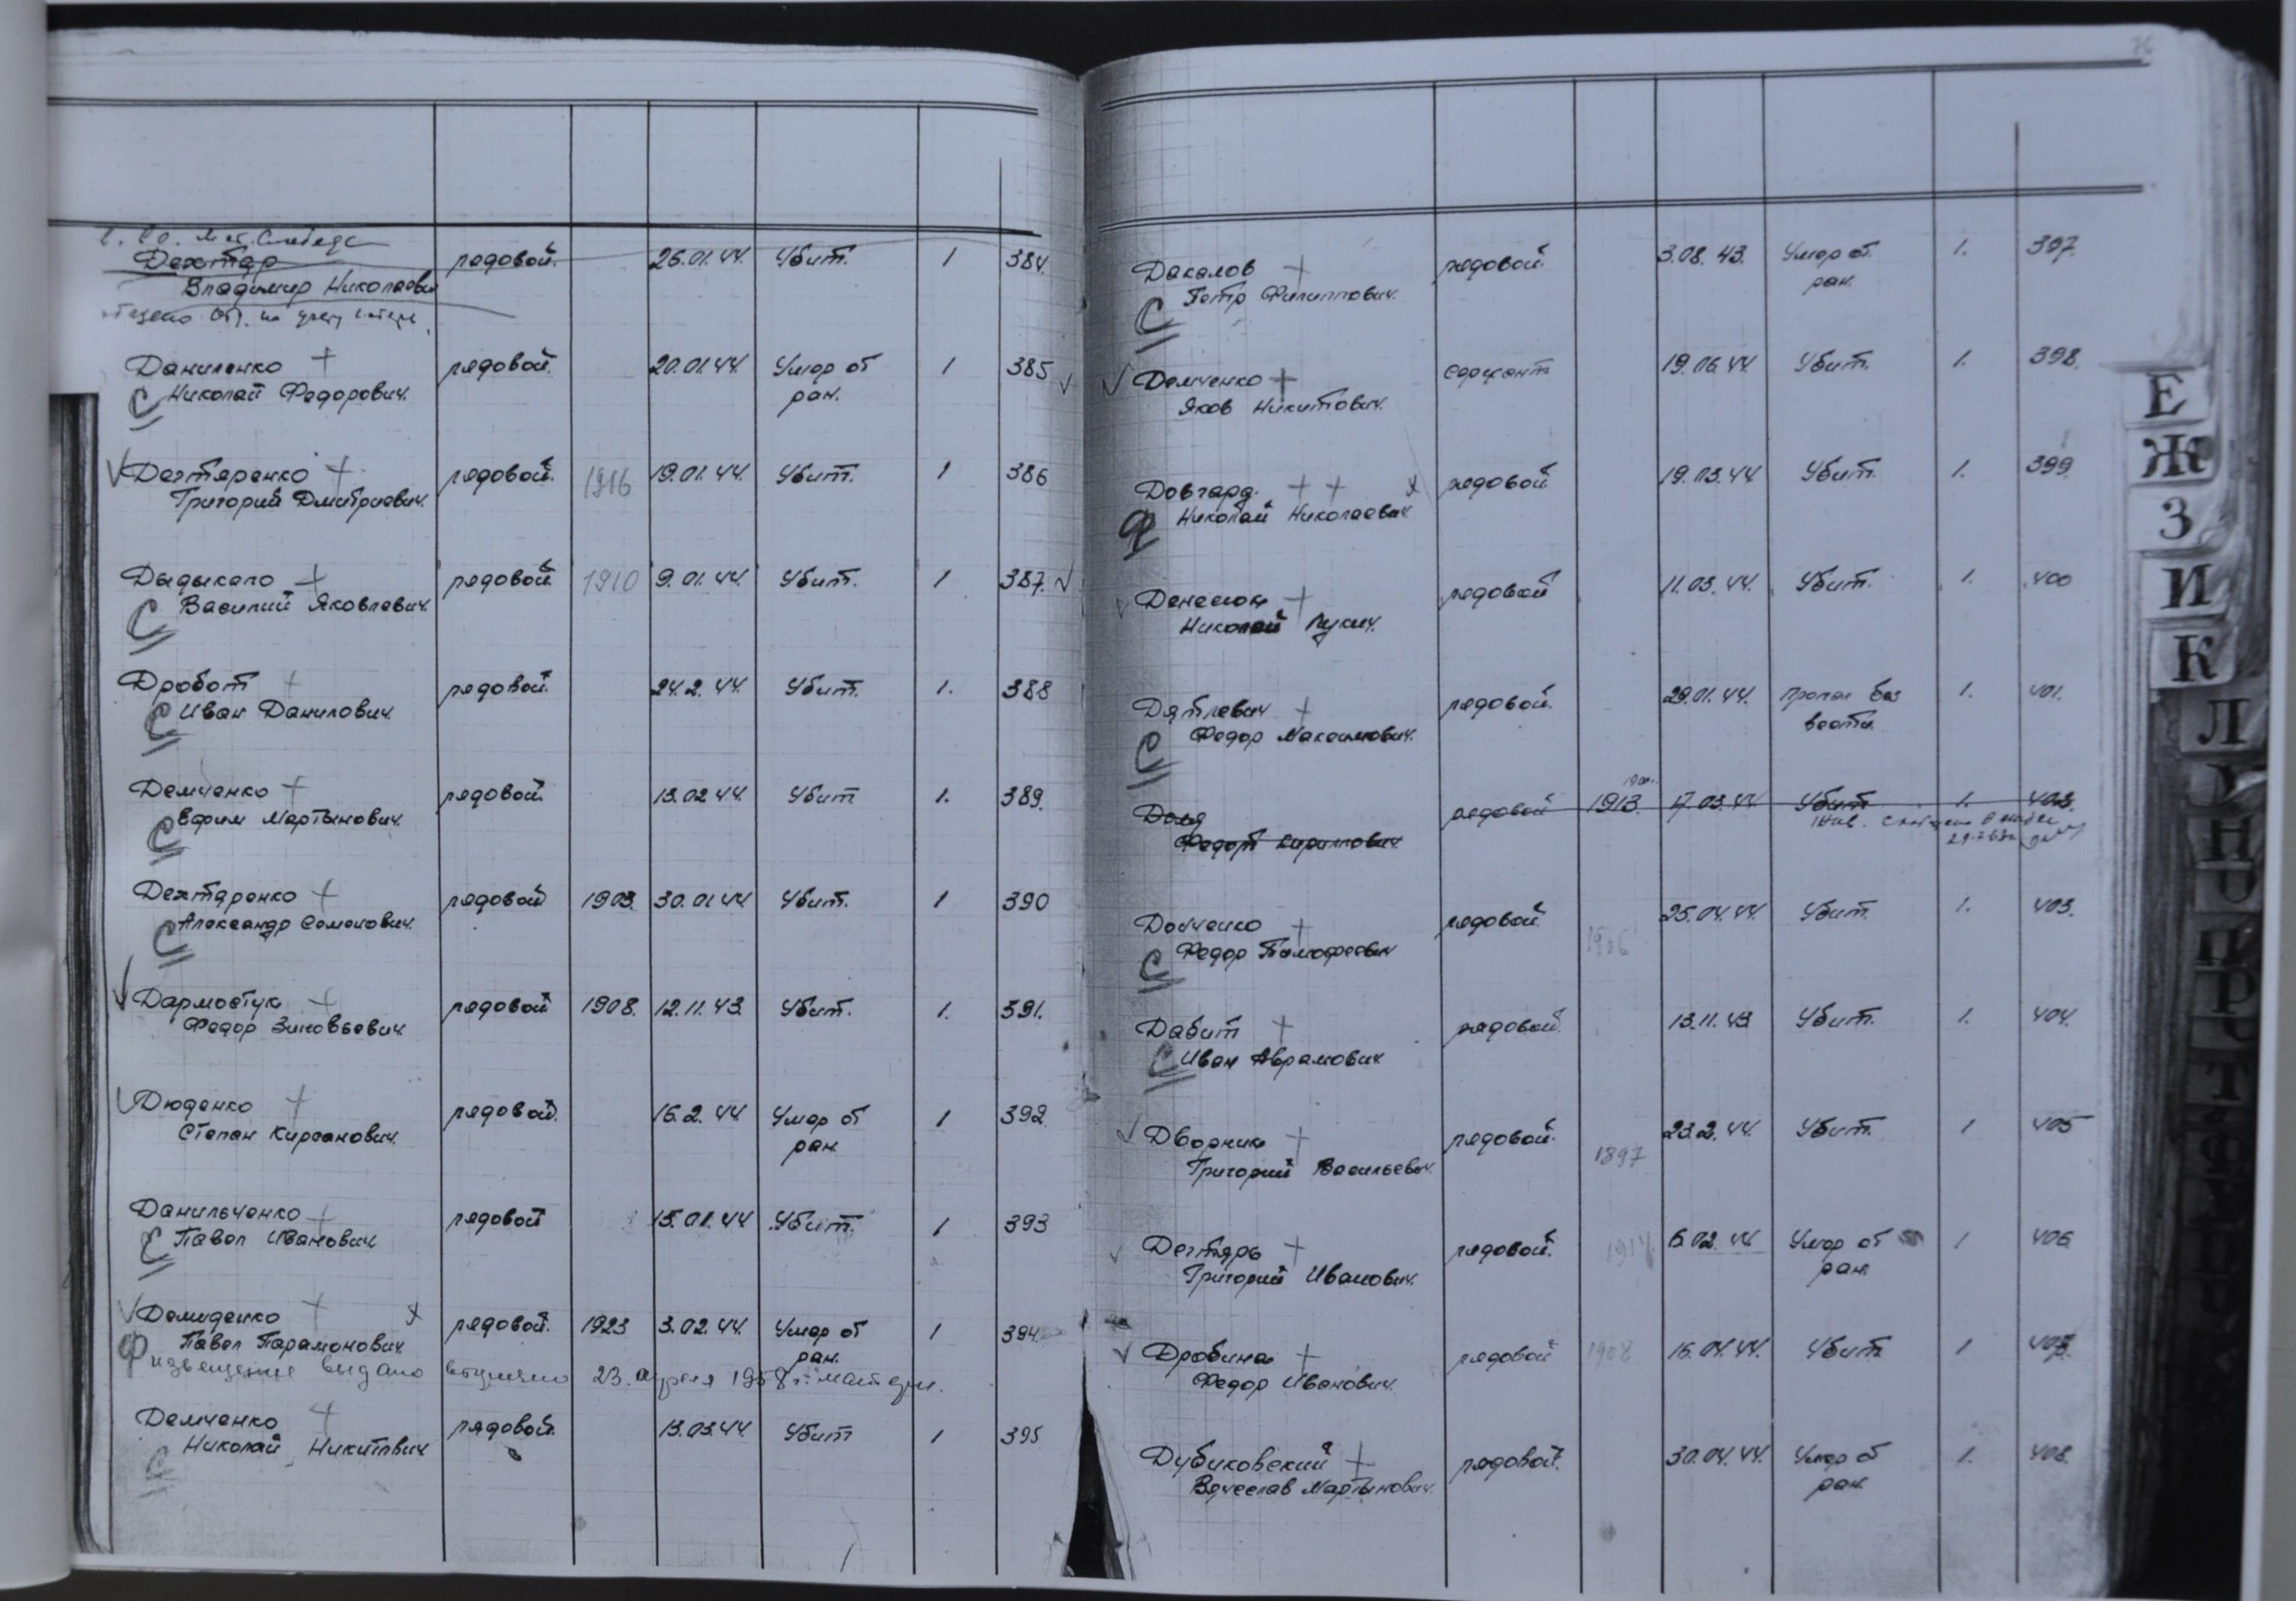 Дехтяр рядовой. 26.01.44. Убит. 1 384.
Владимир Николаевич
Даниленко + рядовой. 20.01.44. Умер от 1 385
С Николай Федорович. ран.
Дегтяренко + рядовой. 1916 19.01.44. Убит. 1 386
Григорий Дмитриевич.
Дыдыкало + рядовой. 1910 9.01.44. Убит. 1 387.
С Василий Яковлевич.
Дробот + рядовой. 24.2.44. Убит. 1. 388
С Иван Данилович.
Демченко + рядовой. 13.02.44. Убит 1. 389.
С Ефим Мартынович.
Дехтяренко + рядовой 1903. 30.01.44 Убит. 1 390
С Александр Семенович.
Дармостук + рядовой 1908. 12.11.43. Убит. 1. 391.
Федор Зиновьевич.
Дюденко + рядовой. 16.2.44 Умер от 1 392
Степан Кирсанович. ран.
Данильченко + рядовой 15.01.44 Убит. 1 393
С Павел Иванович
Демиденко + х рядовой. 1923 3.02.44. Умер от 1 394.
Ф Павел Парамонович. ран.
извещение выдано вторично 23. апреля 1958 г. матери.
Демченко + рядовой. 13.03.44. Убит 1 395
С Николай Никитович
76
Дакалов + рядовой. 3.08.43. Умер от 1. 397.
С Петр Филиппович. ран.
Демченко + сержант 19.06.44 Убит. 1. 398.
Яков Никитович.
Довгард. + + х рядовой. 19.03.44 Убит. 1. 399.
Ф Николай Николаевич
Денесюк + рядовой 11.03.44. Убит. 1. 400
Николай Лукич.
Дятлевич + рядовой. 29.01.44. Пропал без 1. 401.
С Федор Максимович. вести.
рядовой 1913. 17.03.44 Убит 1.
Федор Кириллович
Донченко + рядовой. 1906 25.04.44. Убит. 1. 403.
С Федор Тимофеевич
Дабит + рядовой. 13.11.43 Убит. 1. 404.
С Иван Аврамович
Дворник + рядовой. 1897 23.2.44. Убит. 1 405
Григорий Васильевич.
Дегтярь + рядовой. 6.02.44 Умер от 1 406
Григорий Иванович. ран.
Дробина + рядовой 1908 16.04.44. Убит 1 407.
Федор Иванович.
Дубиковский + рядовой. 30.04.44. Умер от 1. 408.
Вячеслав Мартынович. ран.
Е
Ж
З
И
К
Л
Н
О
П
Р
Т